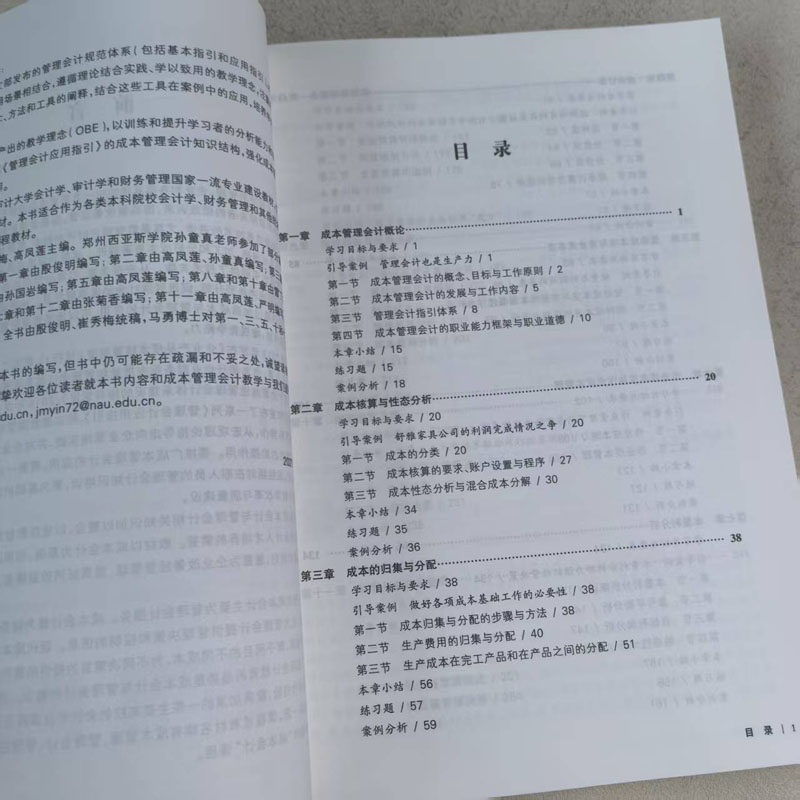 部发布的管理会计规范体系(包括基本指引和应用指引
场景相结合,遵循理论结合实践、学以致用的教学理念,
、方法和工具的阐释,结合这些工具在案例中的应用,培养
产出的教学理念(OBE),以训练和提升学习者的分析能力
《管理会计应用指引》的成本管理会计知识结构,强化成
计大学会计学、审计学和财务管理国家一流专业建设教材
材。本书适合作为各类本科院校会计学、财务管理和其他
程教材。
梅、高凤莲主编。郑州西亚斯学院孙童真老师参加了部分
第一章由殷俊明编写;第二章由高凤莲、孙童真编写;第三
由孙国岩编写;第五章由高凤莲编写;第八章和第十章由
章和第十二章由张菊香编写;第十一章由高凤莲、严明
全书由殷俊明、崔秀梅统稿,马勇博士对第一、三、五、十
本书的编写,但书中仍可能存在疏漏和不妥之处,诚望
挚欢迎各位读者就本书内容和成本管理会计教学与我们
du.cn,jmyin72@nau.edu.cn。
202
目 录
第一章 成本管理会计概论 1
学习目标与要求 / 1
引导案例 管理会计也是生产力 / 1
第一节 成本管理会计的概念、目标与工作原则 / 2
第二节 成本管理会计的发展与工作内容 / 5
第三节 管理会计指引体系 / 8
第四节 成本管理会计的职业能力框架与职业道德 / 10
本章小结 / 15
练习题 / 15
案例分析 / 18
第二章 成本核算与性态分析 20
学习目标与要求 / 20
引导案例 舒雅家具公司的利润完成情况之争 / 20
第一节 成本的分类 / 20
第二节 成本核算的要求、账户设置与程序 / 27
第三节 成本性态分析与混合成本分解 / 30
本章小结 / 34
练习题 / 35
案例分析 / 36
第三章 成本的归集与分配 38
学习目标与要求 / 38
引导案例 做好各项成本基础工作的必要性 / 38
第一节 成本归集与分配的步骤与方法 / 38
第二节 生产费用的归集与分配 / 40
第三节 生产成本在完工产品和在产品之间的分配 / 51
本章小结 / 56
练习题 / 57
案例分析 / 59
目 录 | 1